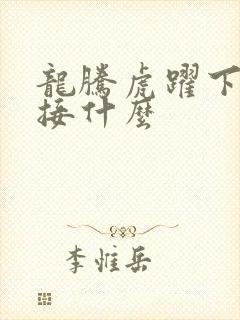 龍騰虎躍下
接什麼
李惟岳